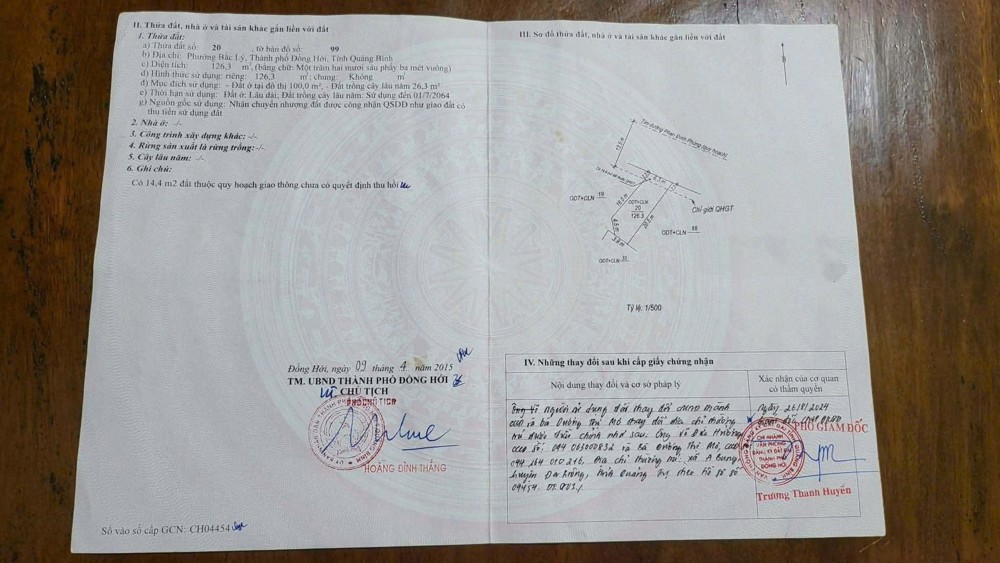 II. Thửa đất, nhà ở và tài sản khác gắn liền với đất
1. Thửa đất:
a) Thửa đất số: 20 , tờ bản đồ số: 99
b) Địa chỉ: Phường Bắc Lý, Thành phố Đồng Hới, Tỉnh Quảng Bình
c) Diện tích: 126,3 m², (bằng chữ: Một trăm hai mươi sáu phẩy ba mét vuông)
d) Hình thức sử dụng: riêng: 126,3 m²; chung: Không m²
đ) Mục đích sử dụng: - Đất ở tại đô thị 100,0 m², - Đất trồng cây lâu năm 26,3 m²
e) Thời hạn sử dụng: Đất ở: Lâu dài; Đất trồng cây lâu năm: Sử dụng đến 01/7/2064
g) Nguồn gốc sử dụng: Nhận chuyển nhượng đất được công nhận QSDĐ như giao đất có
thu tiền sử dụng đất
2. Nhà ở: -/-
3. Công trình xây dựng khác: -/-
4. Rừng sản xuất là rừng trồng: -/-
5. Cây lâu năm: -/-
6. Ghi chú:
Có 14,4 m2 đất thuộc quy hoạch giao thông chưa có quyết định thu hồi
Đồng Hới, ngày 09 tháng 4 năm 2015
TM. UBND THÀNH PHỐ ĐỒNG HỚI
CHỦ TỊCH
PHÓ CHỦ TỊCH
HOÀNG ĐÌNH THẮNG
Số vào sổ cấp GCN: CH04454
III. Sơ đồ thửa đất, nhà ở và tài sản khác gắn liền với đất
Tim đường Phan Đình Phùng (quy hoạch)
Chỉ giới QHGT
ODT+CLN 19
ODT+CLN
20
126.3
ODT+CLN 88
ODT+CLN
Tỷ lệ: 1/500
IV. Những thay đổi sau khi cấp giấy chứng nhận
Nội dung thay đổi và cơ sở pháp lý
Xác nhận của cơ quan
có thẩm quyền
người sử dụng đất thay đổi
và bà Dương Thị Mó thay đổi địa chỉ thường
trú được đính chính như sau: Ông Võ Đức
và Bà Dương Thị Mó,
Địa chỉ thường trú: xã A Bung,
huyện Đa Krông, tỉnh Quảng Trị theo hồ sơ số
Ngày
PHÓ GIÁM ĐỐC
CHI NHÁNH
VĂN PHÒNG
ĐĂNG KÝ ĐẤT ĐAI
THÀNH PHỐ
ĐỒNG HỚI
Trương Thanh Huyền